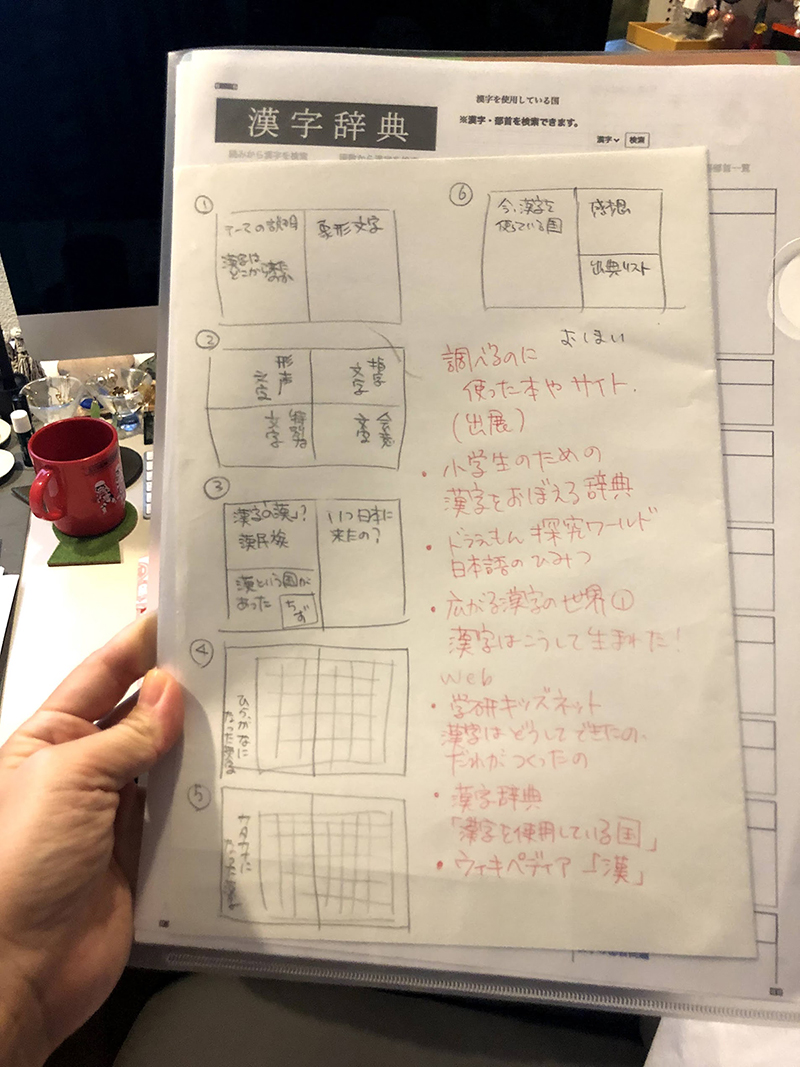 漢字を使用している国
漢字辞典
※漢字・部首を検索できます。
漢字
検索
読みから漢字を検索
部首一覧
①
テーマの説明
漢字は
どこから
象形文字
②
形声
文字
指字
文字
特別な
文字
会意
文字
③
漢字の「漢」?
漢民族
漢という国が
あった
ちず
いつ日本に
来たの?
④
ひらがなに
なった漢字
⑤
カタカナに
なった漢字
⑥
今、漢字を
使っている国
感想
出典リスト
おしまい
調べるのに
使った本やサイト.
(出展)
・小学生のための
漢字をおぼえる辞典
・ドラえもん探究ワールド
日本語のひみつ
・広がる漢字の世界①
漢字はこうして生まれた!
Web
・学研キッズネット
漢字はどうしてできたの、
だれがつくったの
・漢字辞典
「漢字を使用している国」
・ウィキペディア「漢」